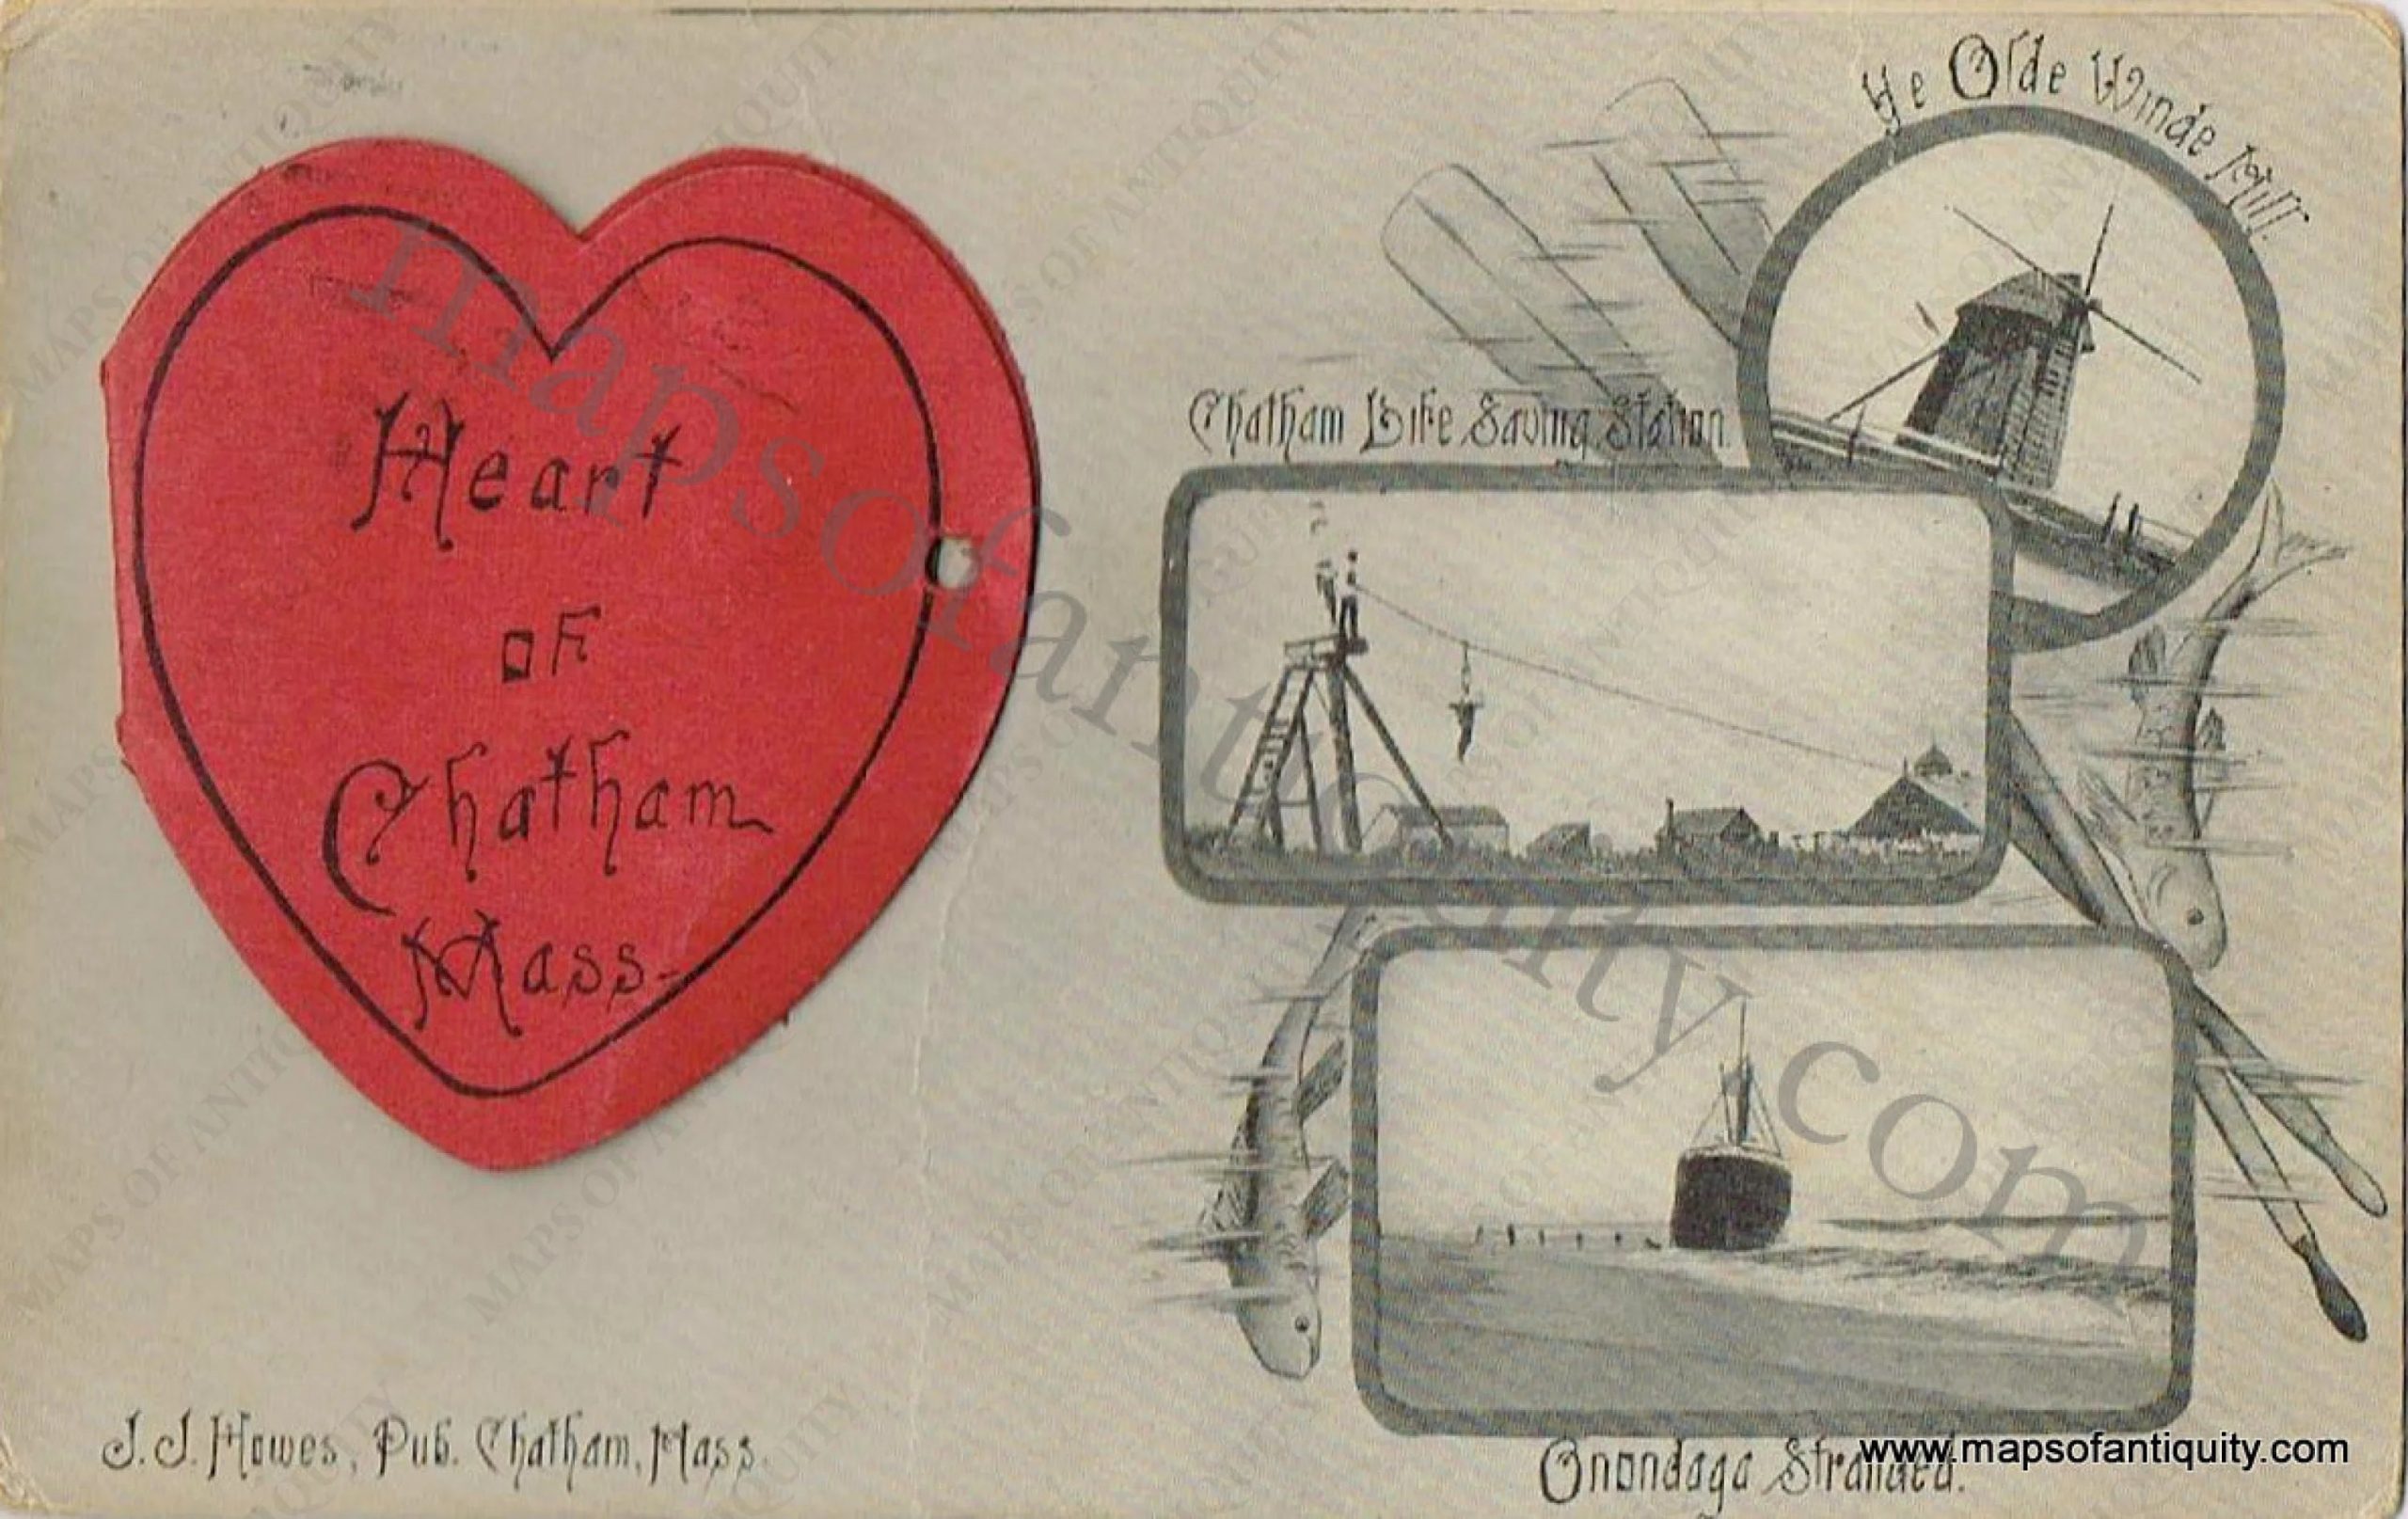 Heart
of
Chatham
Mass-
J. J. Howes, Pub. Chatham, Mass.
Ye Olde Winde Mill.
Chatham Life Saving Station.
Onondaga Stranded.
www.mapsofantiquity.com
mapsofantiquity.com
MAPS OF ANTIQUITY